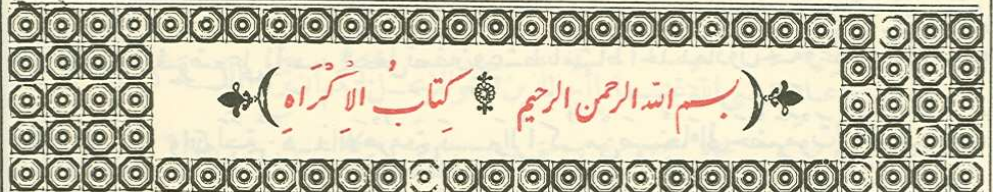 ﴿بسم الله الرحمن الرحيم ۞ كِتَابُ الاِكْرَاهِ﴾